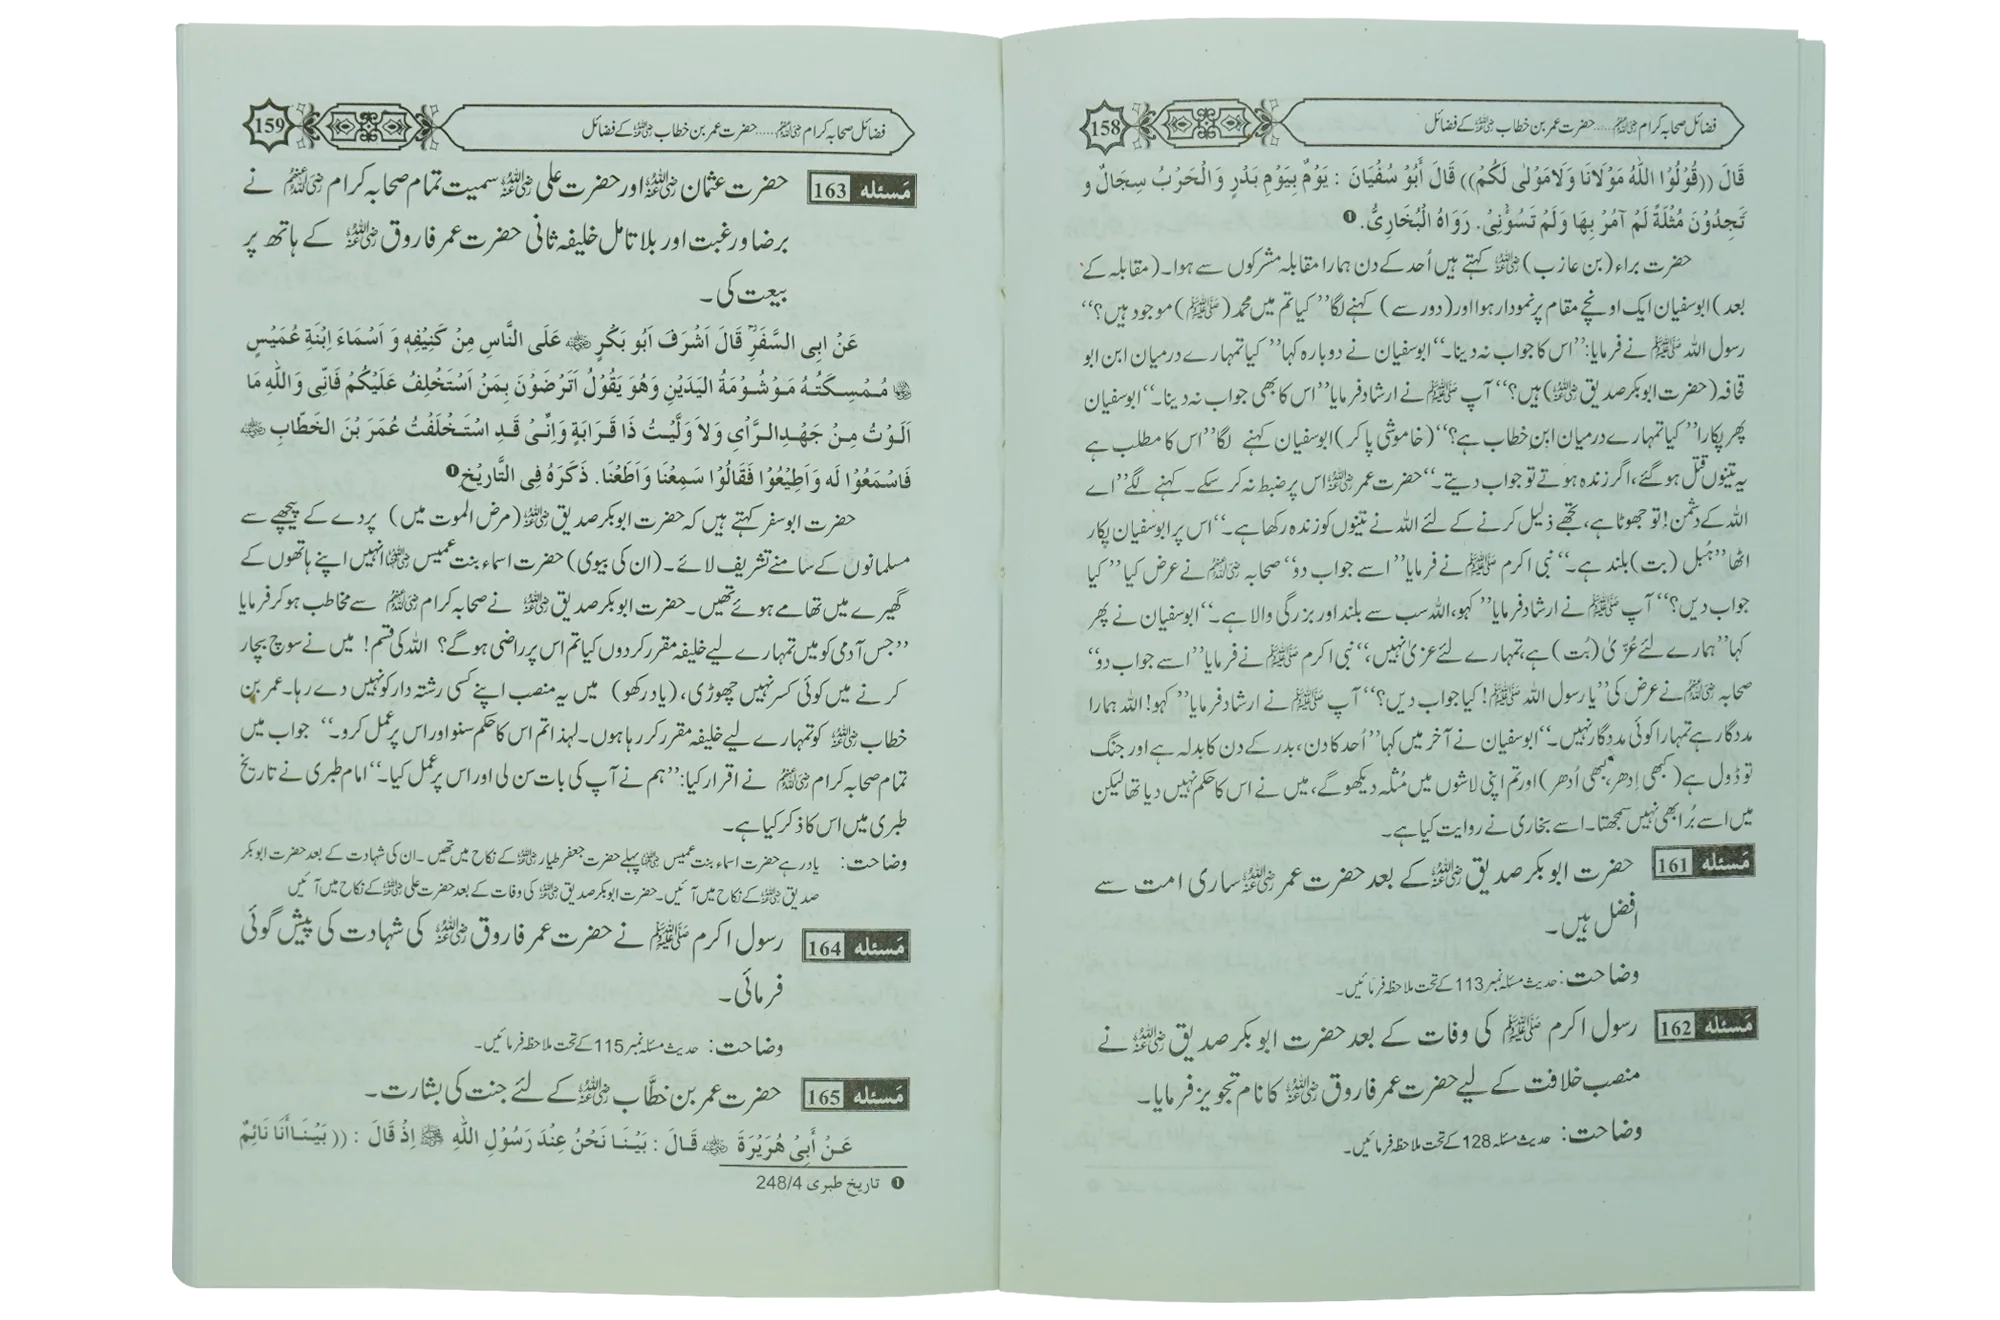 فضائل صحابہ کرام رضی اللہ عنہم ..... حضرت عمر بن خطاب رضی اللہ عنہ کے فضائل 158
قَالَ ((قُوْلُوْا اللّٰهُ مَوْلَانَا وَلَا مَوْلٰى لَكُمْ)) قَالَ أَبُوْ سُفْيَانَ : يَوْمٌ بِيَوْمِ بَدْرٍ وَالْحَرْبُ سِجَالٌ وَ
تَجِدُوْنَ مُثْلَةً لَمْ آمُرْ بِهَا وَلَمْ تَسُؤْنِیْ. رَوَاهُ الْبُخَارِیُّ. ❶
حضرت براء (بن عازب) رضی اللہ عنہ کہتے ہیں اُحد کے دن ہمارا مقابلہ مشرکوں سے ہوا۔ (مقابلہ کے
بعد) ابوسفیان ایک اونچے مقام پر نمودار ہوا اور (دور سے) کہنے لگا’’ کیا تم میں محمد (ﷺ) موجود ہیں؟‘‘
رسول اللہ ﷺ نے فرمایا:’’اس کا جواب نہ دینا۔‘‘ ابوسفیان نے دوبارہ کہا’’ کیا تمہارے درمیان ابن ابو
قحافہ (حضرت ابوبکر صدیق رضی اللہ عنہ) ہیں؟‘‘ آپ ﷺ نے ارشاد فرمایا’’ اس کا بھی جواب نہ دینا۔‘‘ ابوسفیان
پھر پکارا’’ کیا تمہارے درمیان ابن خطاب ہے؟‘‘ (خاموشی پا کر) ابوسفیان کہنے لگا’’اس کا مطلب ہے
یہ تینوں قتل ہو گئے، اگر زندہ ہوتے تو جواب دیتے۔‘‘ حضرت عمر رضی اللہ عنہ اس پر ضبط نہ کر سکے۔ کہنے لگے’’اے
اللہ کے دشمن! تو جھوٹا ہے، تجھے ذلیل کرنے کے لئے اللہ نے تینوں کو زندہ رکھا ہے۔‘‘ اس پر ابوسفیان پکار
اٹھا’’ہُبل (بت) بلند ہے۔‘‘ نبی اکرم ﷺ نے فرمایا’’اسے جواب دو‘‘ صحابہ رضی اللہ عنہم نے عرض کیا’’ کیا
جواب دیں؟‘‘ آپ ﷺ نے ارشاد فرمایا’’ کہو، اللہ سب سے بلند اور بزرگی والا ہے۔‘‘ ابوسفیان نے پھر
کہا’’ہمارے لئے عُزّیٰ (بُت) ہے، تمہارے لئے عزیٰ نہیں،‘‘ نبی اکرم ﷺ نے فرمایا’’اسے جواب دو‘‘
صحابہ رضی اللہ عنہم نے عرض کی’’یا رسول اللہ ﷺ! کیا جواب دیں؟‘‘ آپ ﷺ نے ارشاد فرمایا’’ کہو! اللہ ہمارا
مددگار ہے تمہارا کوئی مددگار نہیں۔‘‘ ابوسفیان نے آخر میں کہا’’اُحد کا دن، بدر کے دن کا بدلہ ہے اور جنگ
تو ڈول ہے (کبھی اِدھر، کبھی اُدھر) اور تم اپنی لاشوں میں مُثلہ دیکھو گے، میں نے اس کا حکم نہیں دیا تھا لیکن
میں اسے بُرا بھی نہیں سمجھتا۔ اسے بخاری نے روایت کیا ہے۔
مَسئلہ 161 حضرت ابوبکر صدیق رضی اللہ عنہ کے بعد حضرت عمر رضی اللہ عنہ ساری امت سے
افضل ہیں۔
وضاحت: حدیث مسئلہ نمبر 113 کے تحت ملاحظہ فرمائیں۔
مَسئلہ 162 رسول اکرم ﷺ کی وفات کے بعد حضرت ابوبکر صدیق رضی اللہ عنہ نے
منصب خلافت کے لیے حضرت عمر فاروق رضی اللہ عنہ کا نام تجویز فرمایا۔
وضاحت: حدیث مسئلہ 128 کے تحت ملاحظہ فرمائیں۔
فضائل صحابہ کرام رضی اللہ عنہم ..... حضرت عمر بن خطاب رضی اللہ عنہ کے فضائل 159
مَسئلہ 163 حضرت عثمان رضی اللہ عنہ اور حضرت علی رضی اللہ عنہ سمیت تمام صحابہ کرام رضی اللہ عنہم نے
برضا ورغبت اور بلا تامل خلیفہ ثانی حضرت عمر فاروق رضی اللہ عنہ کے ہاتھ پر
بیعت کی۔
عَنْ اَبِی السَّفَرِ قَالَ اَشْرَفَ اَبُوْ بَكْرٍ رضی اللہ عنہ عَلَى النَّاسِ مِنْ كَنِيْفِهٖ وَ اَسْمَاءَ اِبْنَةِ عُمَيْسٍ
رضی اللہ عنہا مُمْسِكَتُهُ مَوْشُوْمَةُ الْيَدَيْنِ وَهُوَ يَقُوْلُ اَتَرْضَوْنَ بِمَنْ اَسْتَخْلِفُ عَلَيْكُمْ فَاِنِّی وَاللّٰهِ مَا
اَلَوْتُ مِنْ جَهْدِ الرَّاْیِ وَلَا وَلَّيْتُ ذَا قَرَابَةٍ وَاِنِّیْ قَدِ اسْتَخْلَفْتُ عُمَرَ بْنَ الْخَطَّابِ رضی اللہ عنہ
فَاسْمَعُوْا لَه وَاَطِيْعُوْا فَقَالُوْا سَمِعْنَا وَاَطَعْنَا. ذَكَرَهُ فِی التَّارِيْخِ ❶
حضرت ابوسفر کہتے ہیں کہ حضرت ابوبکر صدیق رضی اللہ عنہ (مرض الموت میں) پردے کے پیچھے سے
مسلمانوں کے سامنے تشریف لائے۔ (ان کی بیوی) حضرت اسماء بنت عمیس رضی اللہ عنہا انہیں اپنے ہاتھوں کے
گھیرے میں تھامے ہوئے تھیں۔ حضرت ابوبکر صدیق رضی اللہ عنہ نے صحابہ کرام رضی اللہ عنہم سے مخاطب ہو کر فرمایا
’’جس آدمی کو میں تمہارے لیے خلیفہ مقرر کر دوں کیا تم اس پر راضی ہو گے؟ اللہ کی قسم! میں نے سوچ بچار
کرنے میں کوئی کسر نہیں چھوڑی، (یاد رکھو) میں یہ منصب اپنے کسی رشتہ دار کو نہیں دے رہا۔ عمر بن
خطاب رضی اللہ عنہ کو تمہارے لیے خلیفہ مقرر کر رہا ہوں۔ لہذا تم اس کا حکم سنو اور اس پر عمل کرو۔‘‘ جواب میں
تمام صحابہ کرام رضی اللہ عنہم نے اقرار کیا:’’ہم نے آپ کی بات سن لی اور اس پر عمل کیا۔‘‘ امام طبری نے تاریخ
طبری میں اس کا ذکر کیا ہے۔
وضاحت: یاد رہے حضرت اسماء بنت عمیس رضی اللہ عنہا پہلے حضرت جعفر طیار رضی اللہ عنہ کے نکاح میں تھیں۔ ان کی شہادت کے بعد حضرت ابوبکر
صدیق رضی اللہ عنہ کے نکاح میں آئیں۔ حضرت ابوبکر صدیق رضی اللہ عنہ کی وفات کے بعد حضرت علی رضی اللہ عنہ کے نکاح میں آئیں
مَسئلہ 164 رسول اکرم ﷺ نے حضرت عمر فاروق رضی اللہ عنہ کی شہادت کی پیش گوئی
فرمائی۔
وضاحت: حدیث مسئلہ نمبر 115 کے تحت ملاحظہ فرمائیں۔
مَسئلہ 165 حضرت عمر بن خطَّاب رضی اللہ عنہ کے لئے جنت کی بشارت۔
عَنْ أَبِیْ هُرَيْرَةَ رضی اللہ عنہ قَالَ : بَيْنَا نَحْنُ عِنْدَ رَسُوْلِ اللّٰهِ ﷺ اِذْ قَالَ : (( بَيْنَا أَنَا نَائِمٌ
❶ تاریخ طبری 248/4